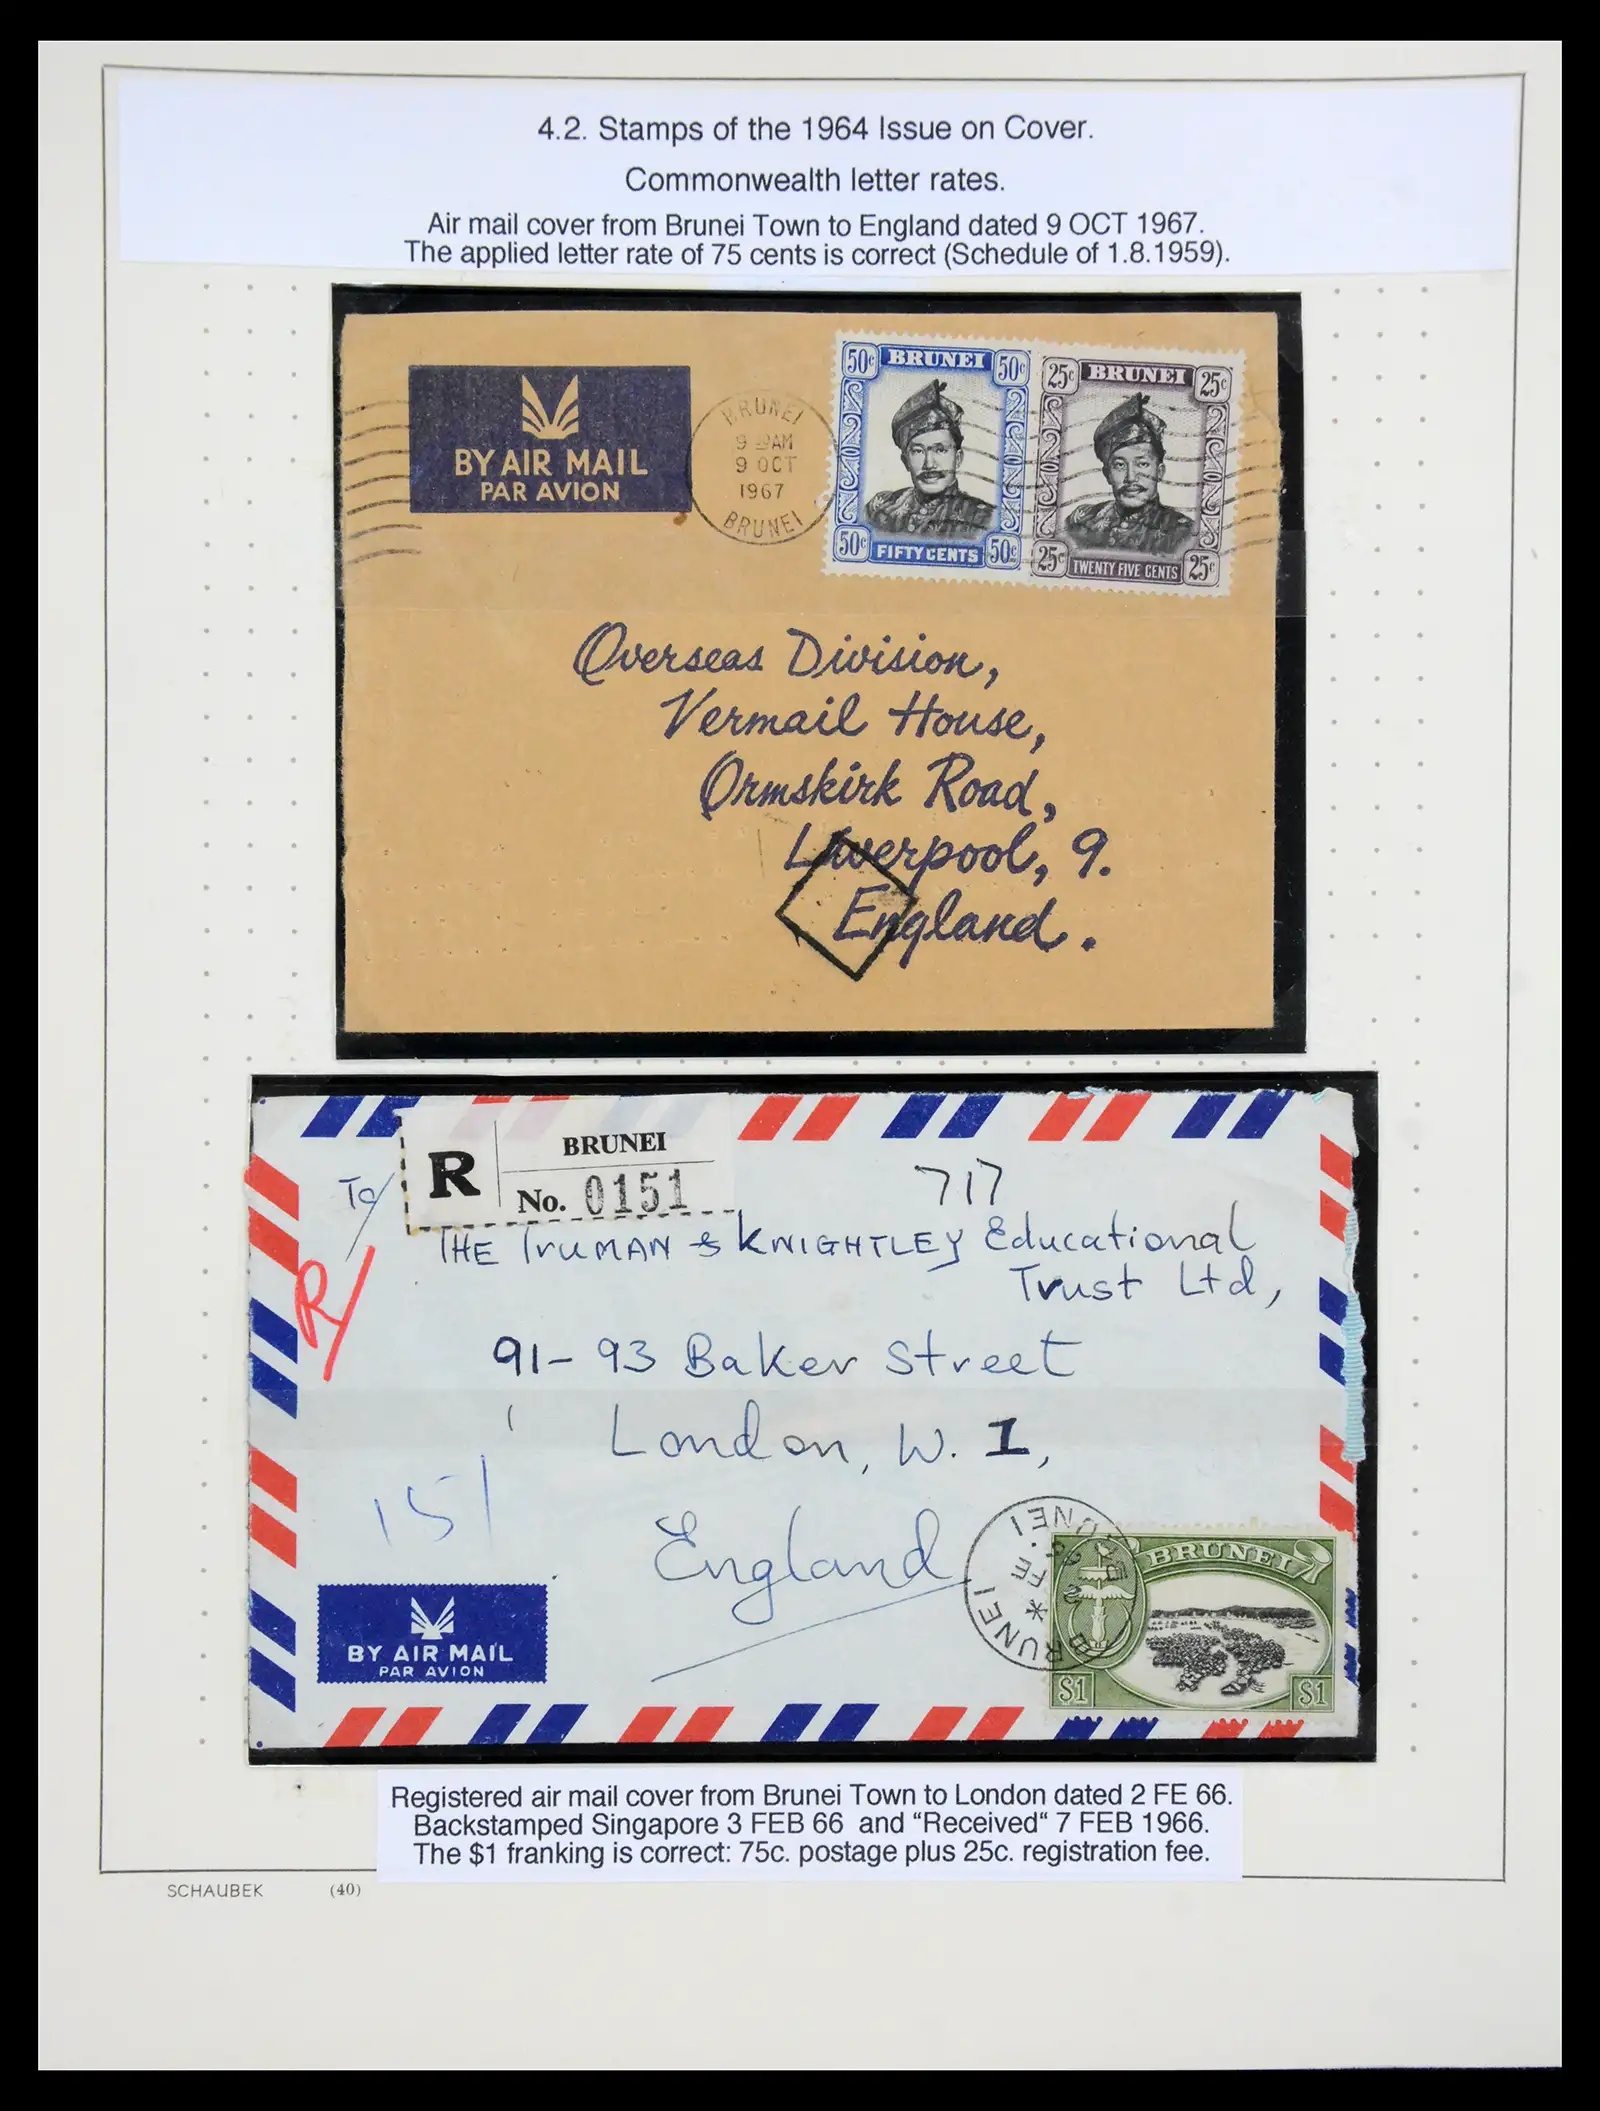 4.2. Stamps of the 1964 Issue on Cover.
Commonwealth letter rates.
Air mail cover from Brunei Town to England dated 9 OCT 1967.
The applied letter rate of 75 cents is correct (Schedule of 1.8.1959).
BY AIR MAIL
PAR AVION
BRUNEI
9 OCT
1967
BRUNEI
50c BRUNEI 50c
50c FIFTY CENTS 50c
25c BRUNEI 25c
25c TWENTY FIVE CENTS 25c
Overseas Division,
Vermail House,
Ormskirk Road,
Liverpool, 9.
England.
R
BRUNEI
No. 0151
717
To/
THE TRUMAN & KNIGHTLEY Educational
Trust Ltd,
R/
91-93 Baker Street
London, W. I,
151
England
BY AIR MAIL
PAR AVION
BRUNEI
2 FE
BRUNEI
BRUNEI
$1 $1
Registered air mail cover from Brunei Town to London dated 2 FE 66.
Backstamped Singapore 3 FEB 66 and "Received" 7 FEB 1966.
The $1 franking is correct: 75c. postage plus 25c. registration fee.
SCHAUBEK (40)